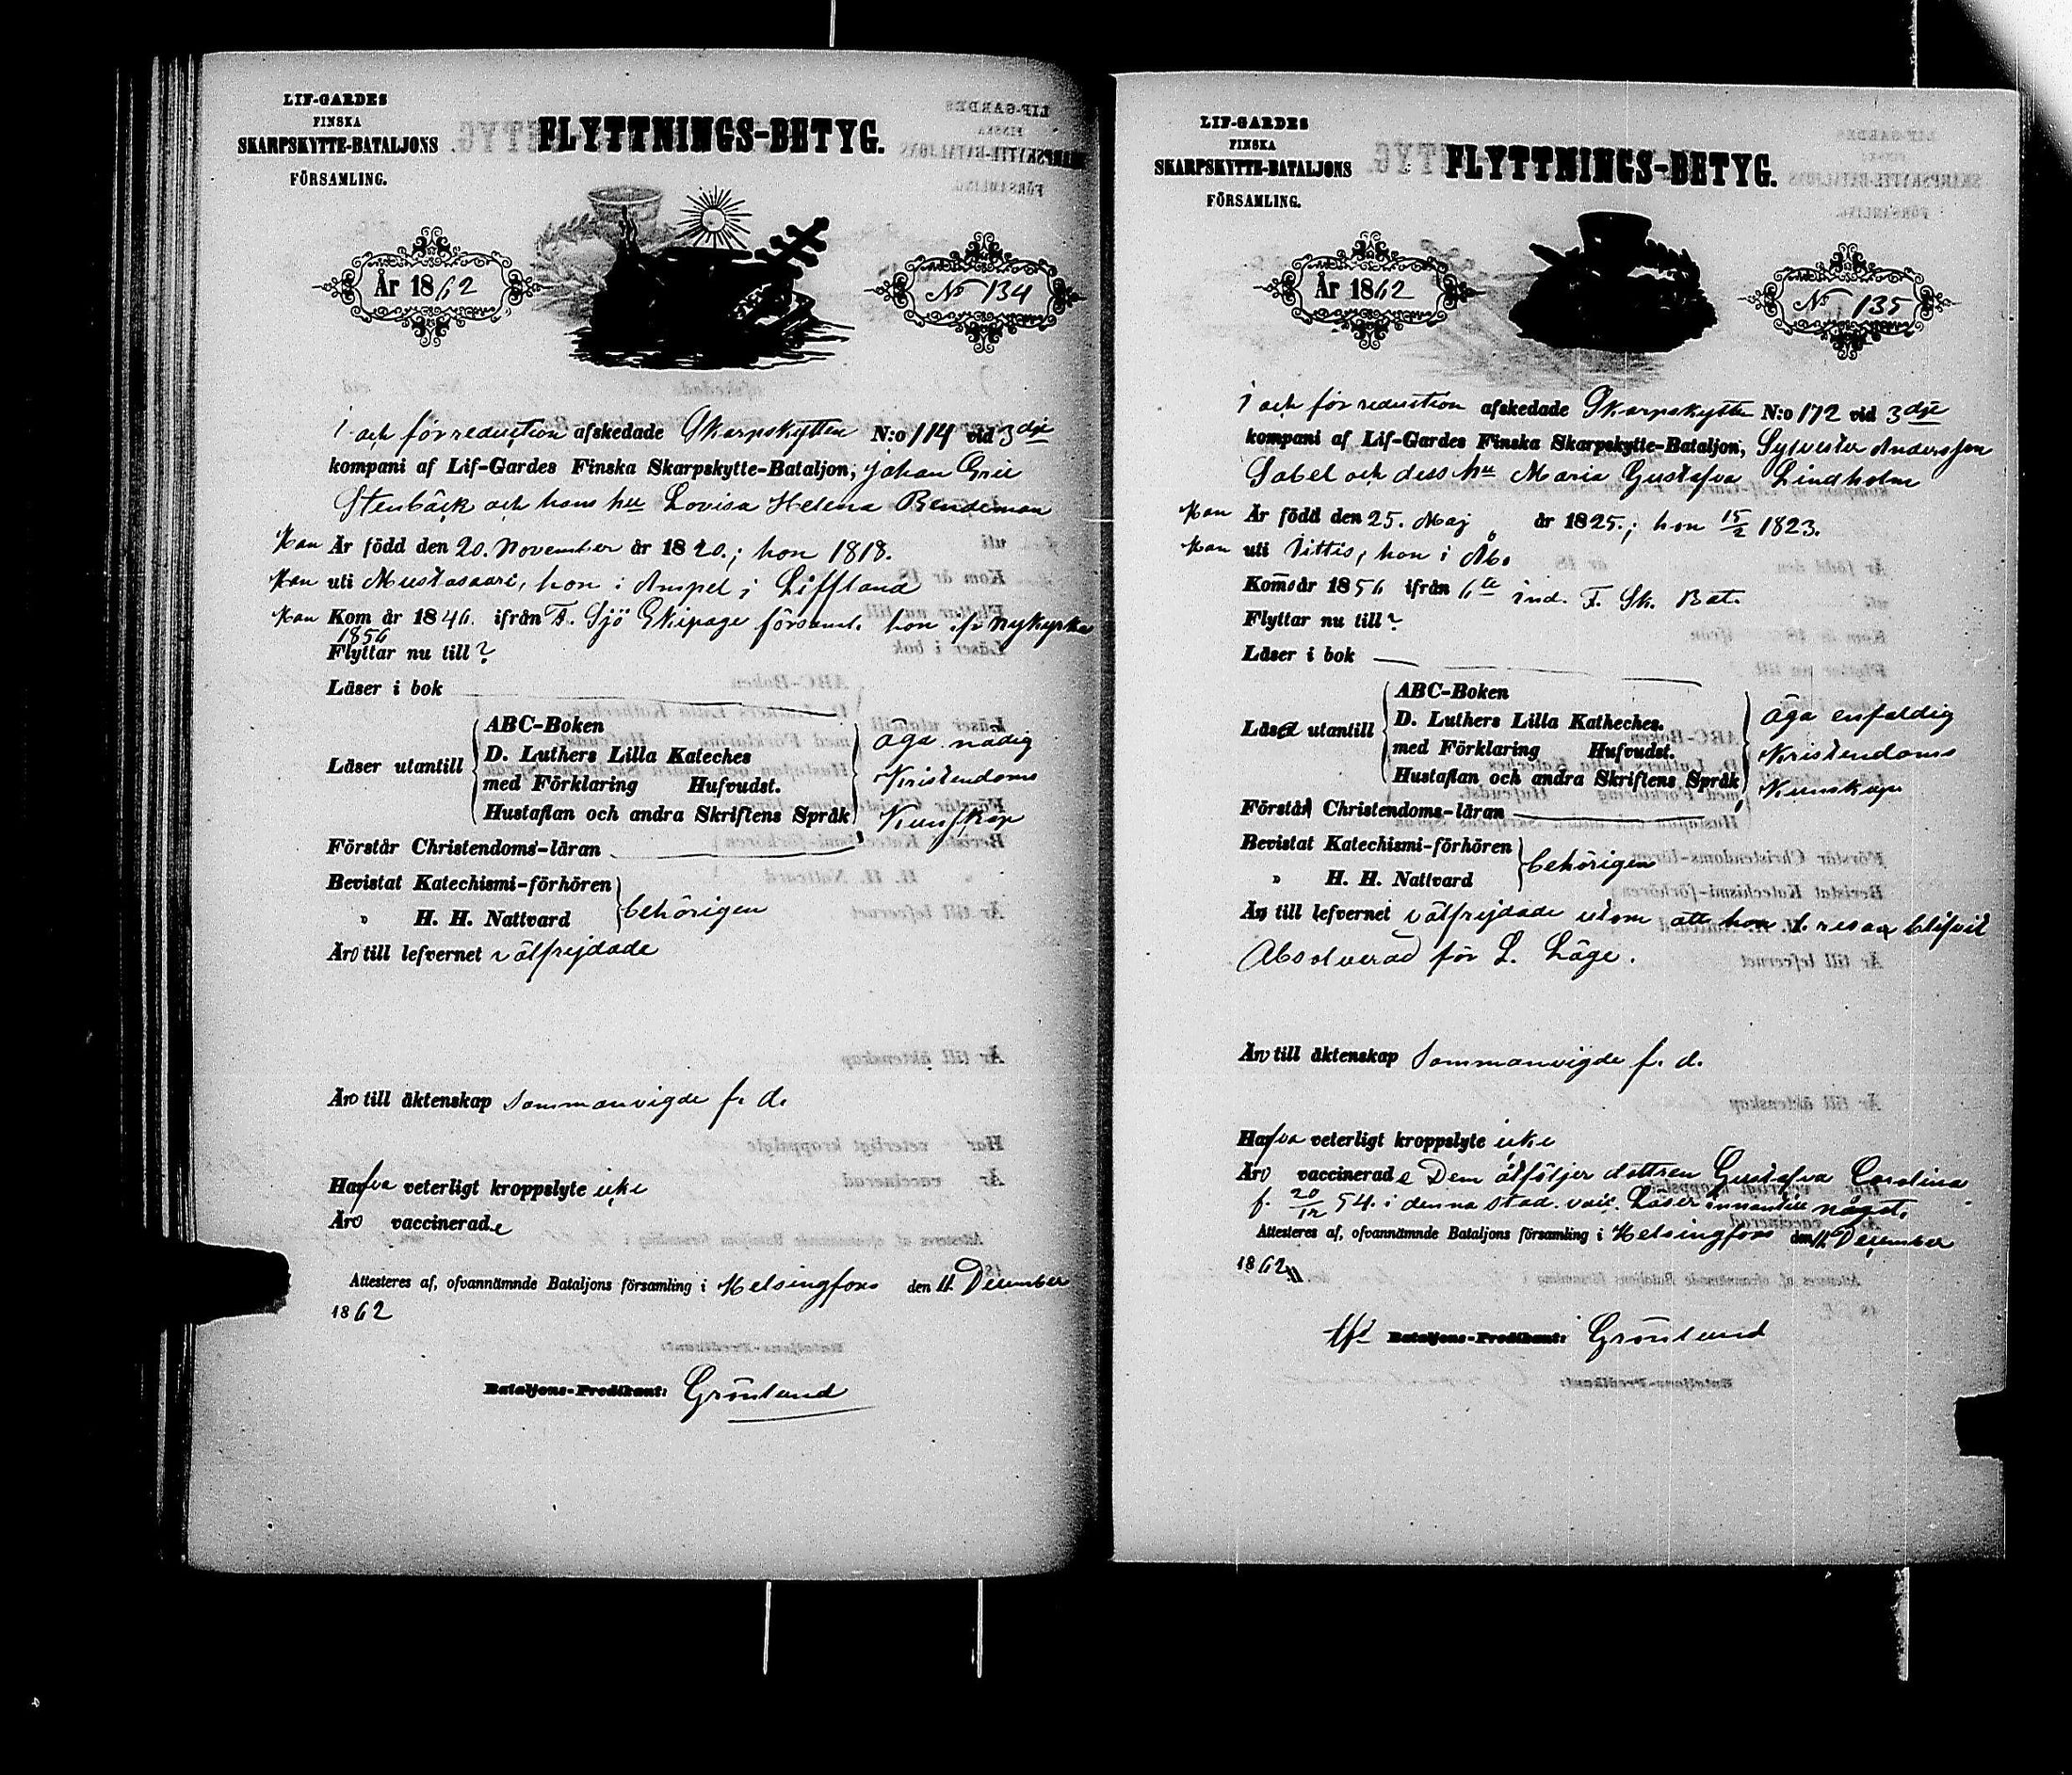 LIF-GARDES
FINSKA
SKARPSKYTTE-BATALJONS
FÖRSAMLING.
FLYTTNINGS-BETYG.
År 1862
No 134
I och för reduction afskedade Skarpskytten N:o 114 vid 3dje
kompani af Lif-Gardes Finska Skarpskytte-Bataljon, Johan Eric
Stenbäck och hans hu Lovisa Helena Bendeman
Han Är född den 20. November år 1820.; hon 1818.
Han uti Mustasaari, hon i Ampel i Liffland
Han Kom år 1846. ifrån F. Sjö Ekipage församl. hon ifr Nykyrka
1856
Flyttar nu till?
Läser i bok
Läser utantill
ABC-Boken
D. Luthers Lilla Kateches
med Förklaring Hufvudst.
Hustaflan och andra Skriftens Språk
äga nödig
Kristendoms
Kunskap
Förstår Christendoms-läran
Bevistat Katechismi-förhören
" H. H. Nattvard
behörigen
Äro till lefvernet välfrejdade
Äro till äktenskap sammanvigde f. d.
Hafva veterligt kroppslyte icke
Äro vaccinerade
Attesteres af, ofvannämnde Bataljons församling i Helsingfors den 11. December
1862
Bataljons-Predikant: Grönlund
LIF-GARDES
FINSKA
SKARPSKYTTE-BATALJONS
FÖRSAMLING.
FLYTTNINGS-BETYG.
År 1862
No 135
I och för reduction afskedade Skarpskytten N:o 172 vid 3dje
kompani af Lif-Gardes Finska Skarpskytte-Bataljon, Sylvester Andersson
Sabel och dess hu Maria Gustafva Lindholm
Han Är född den 25. Maj år 1825.; hon 15/2 1823.
Han uti Vittis, hon i Åbo
Komo år 1856 ifrån 6te ind. F. Sk. Bat.
Flyttar nu till?
Läser i bok
Läser utantill
ABC-Boken
D. Luthers Lilla Katheches.
med Förklaring Hufvudst.
Hustaflan och andra Skriftens Språk
äga enfaldig
Kristendoms
Kunskap
Förstår Christendoms-läran
Bevistat Katechismi-förhören
" H. H. Nattvard
behörigen
Äro till lefvernet välfrejdade utom att hon 1. resa blifvit
Absolverad för L. Läge.
Äro till äktenskap Sammanvigde f. d.
Hafva veterligt kroppslyte icke
Äro vaccinerade Dem åtföljer dottren Gustafva Carolina
f. 20/12 54. i denna stad. vacc. Läser innantill något.
Attesteres af, ofvannämnde Bataljons församling i Helsingfors den 11. December
1862
Bataljons-Predikant: Grönlund